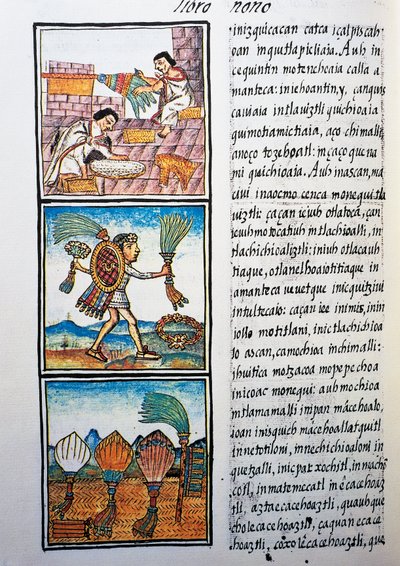 libro nono
inizquicacan catca icalpiscah
oan inquitlapicliaia. Auh in
cequintin motenehoaia calla a
manteca: iniehoantin, y, çanquis
caviaia intlaviztli quichioaia
quimotamictiaia, aço chimalli
anoço tozehoatl: inçaço quena
mi quichioaia. Auh inascan, ma
civi inaocmo cenca monequitla
viztli: çaçan icuh otlatoca, çan
icuh motocatiuh intlachioalli, in
tlachichioaliztli: iniuh otlacauh
tiaque, otlanelhoaiotitiaque in
amanteca vevetque inicquitzivi
intultecaio: çaçan iee inimis, inin
iollo motitlani, inic tlachichioa
lo ascan, camochioa inchimalli:
ihuitica motzacoa mopepechoa
inicoac monequi: auh mochioa
intlamamalli inipan mâcehoalo,
ioan inisquich macehoallatquitl
innetotiloni, innechichioaloni in
quetzalli, inicpacxochitl, inmacho
cotl, inmatemecatl inecacehoaz
tli, aztaecacehoaztli, quauhque
cholecacehoaztli, çaquanecace
hoaztli, coxolecacehoaztli, que